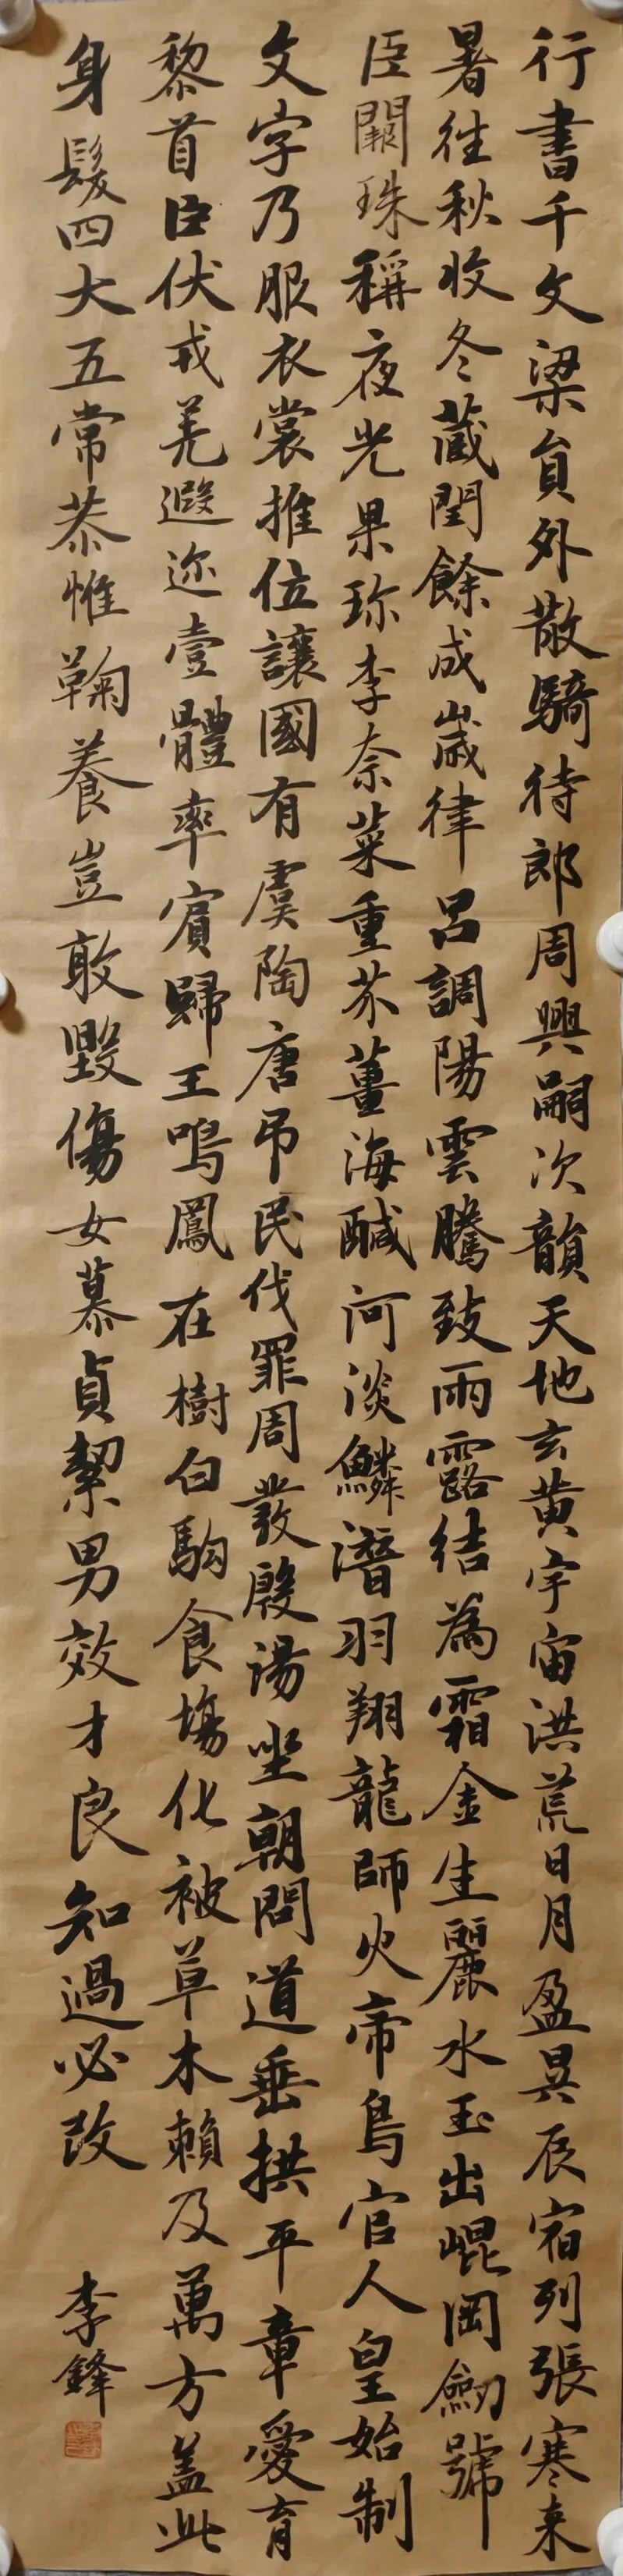 行書千文梁員外散騎待郎周興嗣次韻天地玄黃宇宙洪荒日月盈昃辰宿列張寒来
暑往秋收冬蔵閏餘成歲律呂調陽雲騰致雨露結為霜金生麗水玉出崐岡劒號
臣闕珠稱夜光果珎李奈菜重芥薑海醎河淡鱗潛羽翔龍師火帝鳥官人皇始制
文字乃服衣裳推位讓國有虞陶唐吊民伐罪周發殷湯坐朝問道垂拱平章愛育
黎首臣伏戎羌遐迩壹體率賓歸王鳴鳳在樹白駒食場化被草木賴及萬方盖此
身髮四大五常恭惟鞠養豈敢毀傷女慕貞絜男效才良知過必改
李鋒